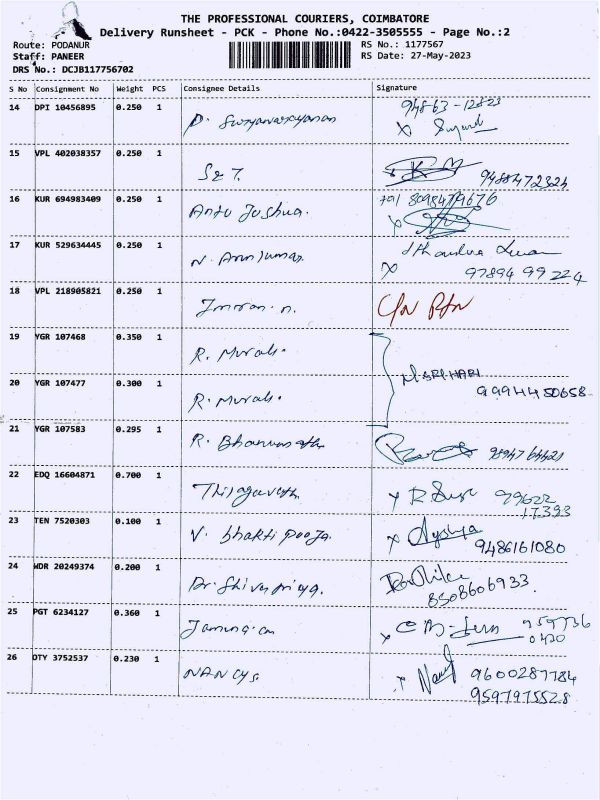 THE PROFESSIONAL COURIERS, COIMBATORE
Delivery Runsheet - PCK - Phone No.:0422-3505555 - Page No.:2
Route: PODANUR
RS No.: 1177567
Staff: PANEER
RS Date: 27-May-2023
DRS No.: DCJB117756702
S No Consignment No Weight PCS Consignee Details Signature
14 DPI 10456895 0.250 1 P. Suryanarayanan
15 VPL 402038357 0.250 1 S & T. 9488472324
16 KUR 694983409 0.250 1 Anto Joshua. +91 8098479676
17 KUR 529634445 0.250 1 N. Arun kumar 97894 99224
18 VPL 218905821 0.250 1 Imran. n.
19 YGR 107468 0.350 1 R. Murali.
20 YGR 107477 0.300 1 R. Murali. M. SRI HARI
9994450658
21 YGR 107583 0.295 1 R.
22 EDQ 16604871 0.700 1 99622
17393
23 TEN 7520303 0.100 1 V. bhakti pooja. x 9486161080
24 WDR 20249374 0.200 1 Dr. Shivapriya. 8508606933.
25 PGT 6234127 0.360 1
26 DTY 3752537 0.230 1 NANCYS. x 9600287784
9597975528